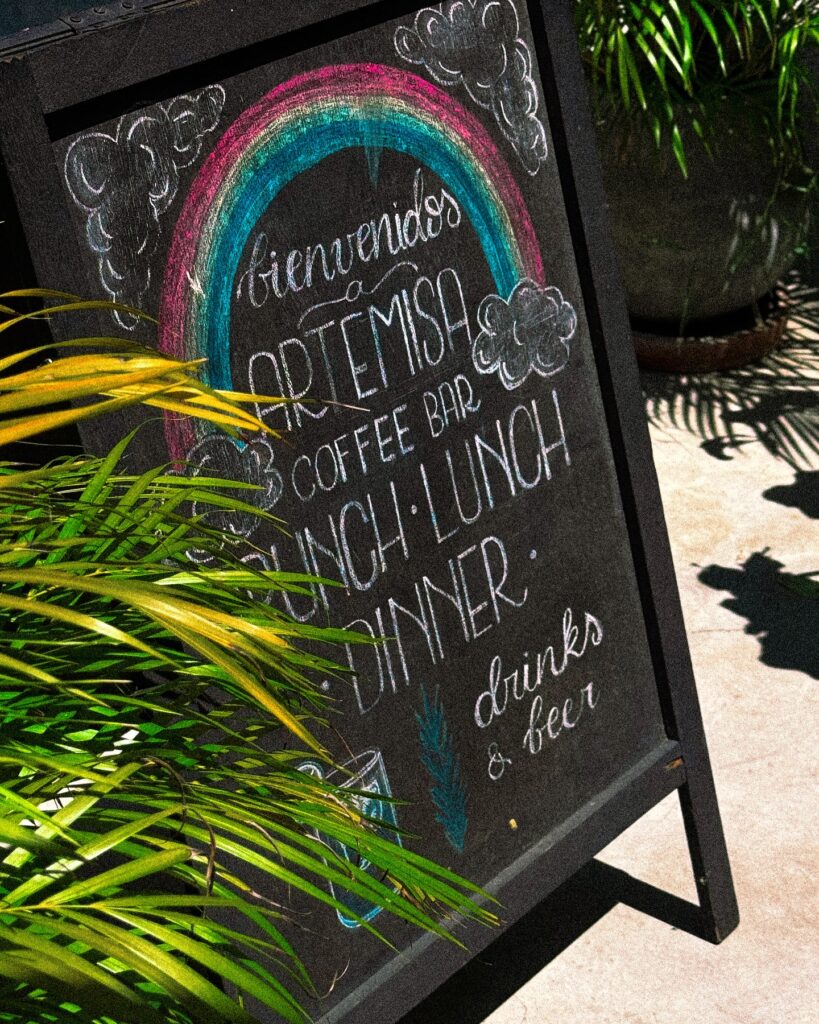 bienvenidos
a
ARTEMISA
COFFEE BAR
BRUNCH · LUNCH
· DINNER ·
drinks
& beer